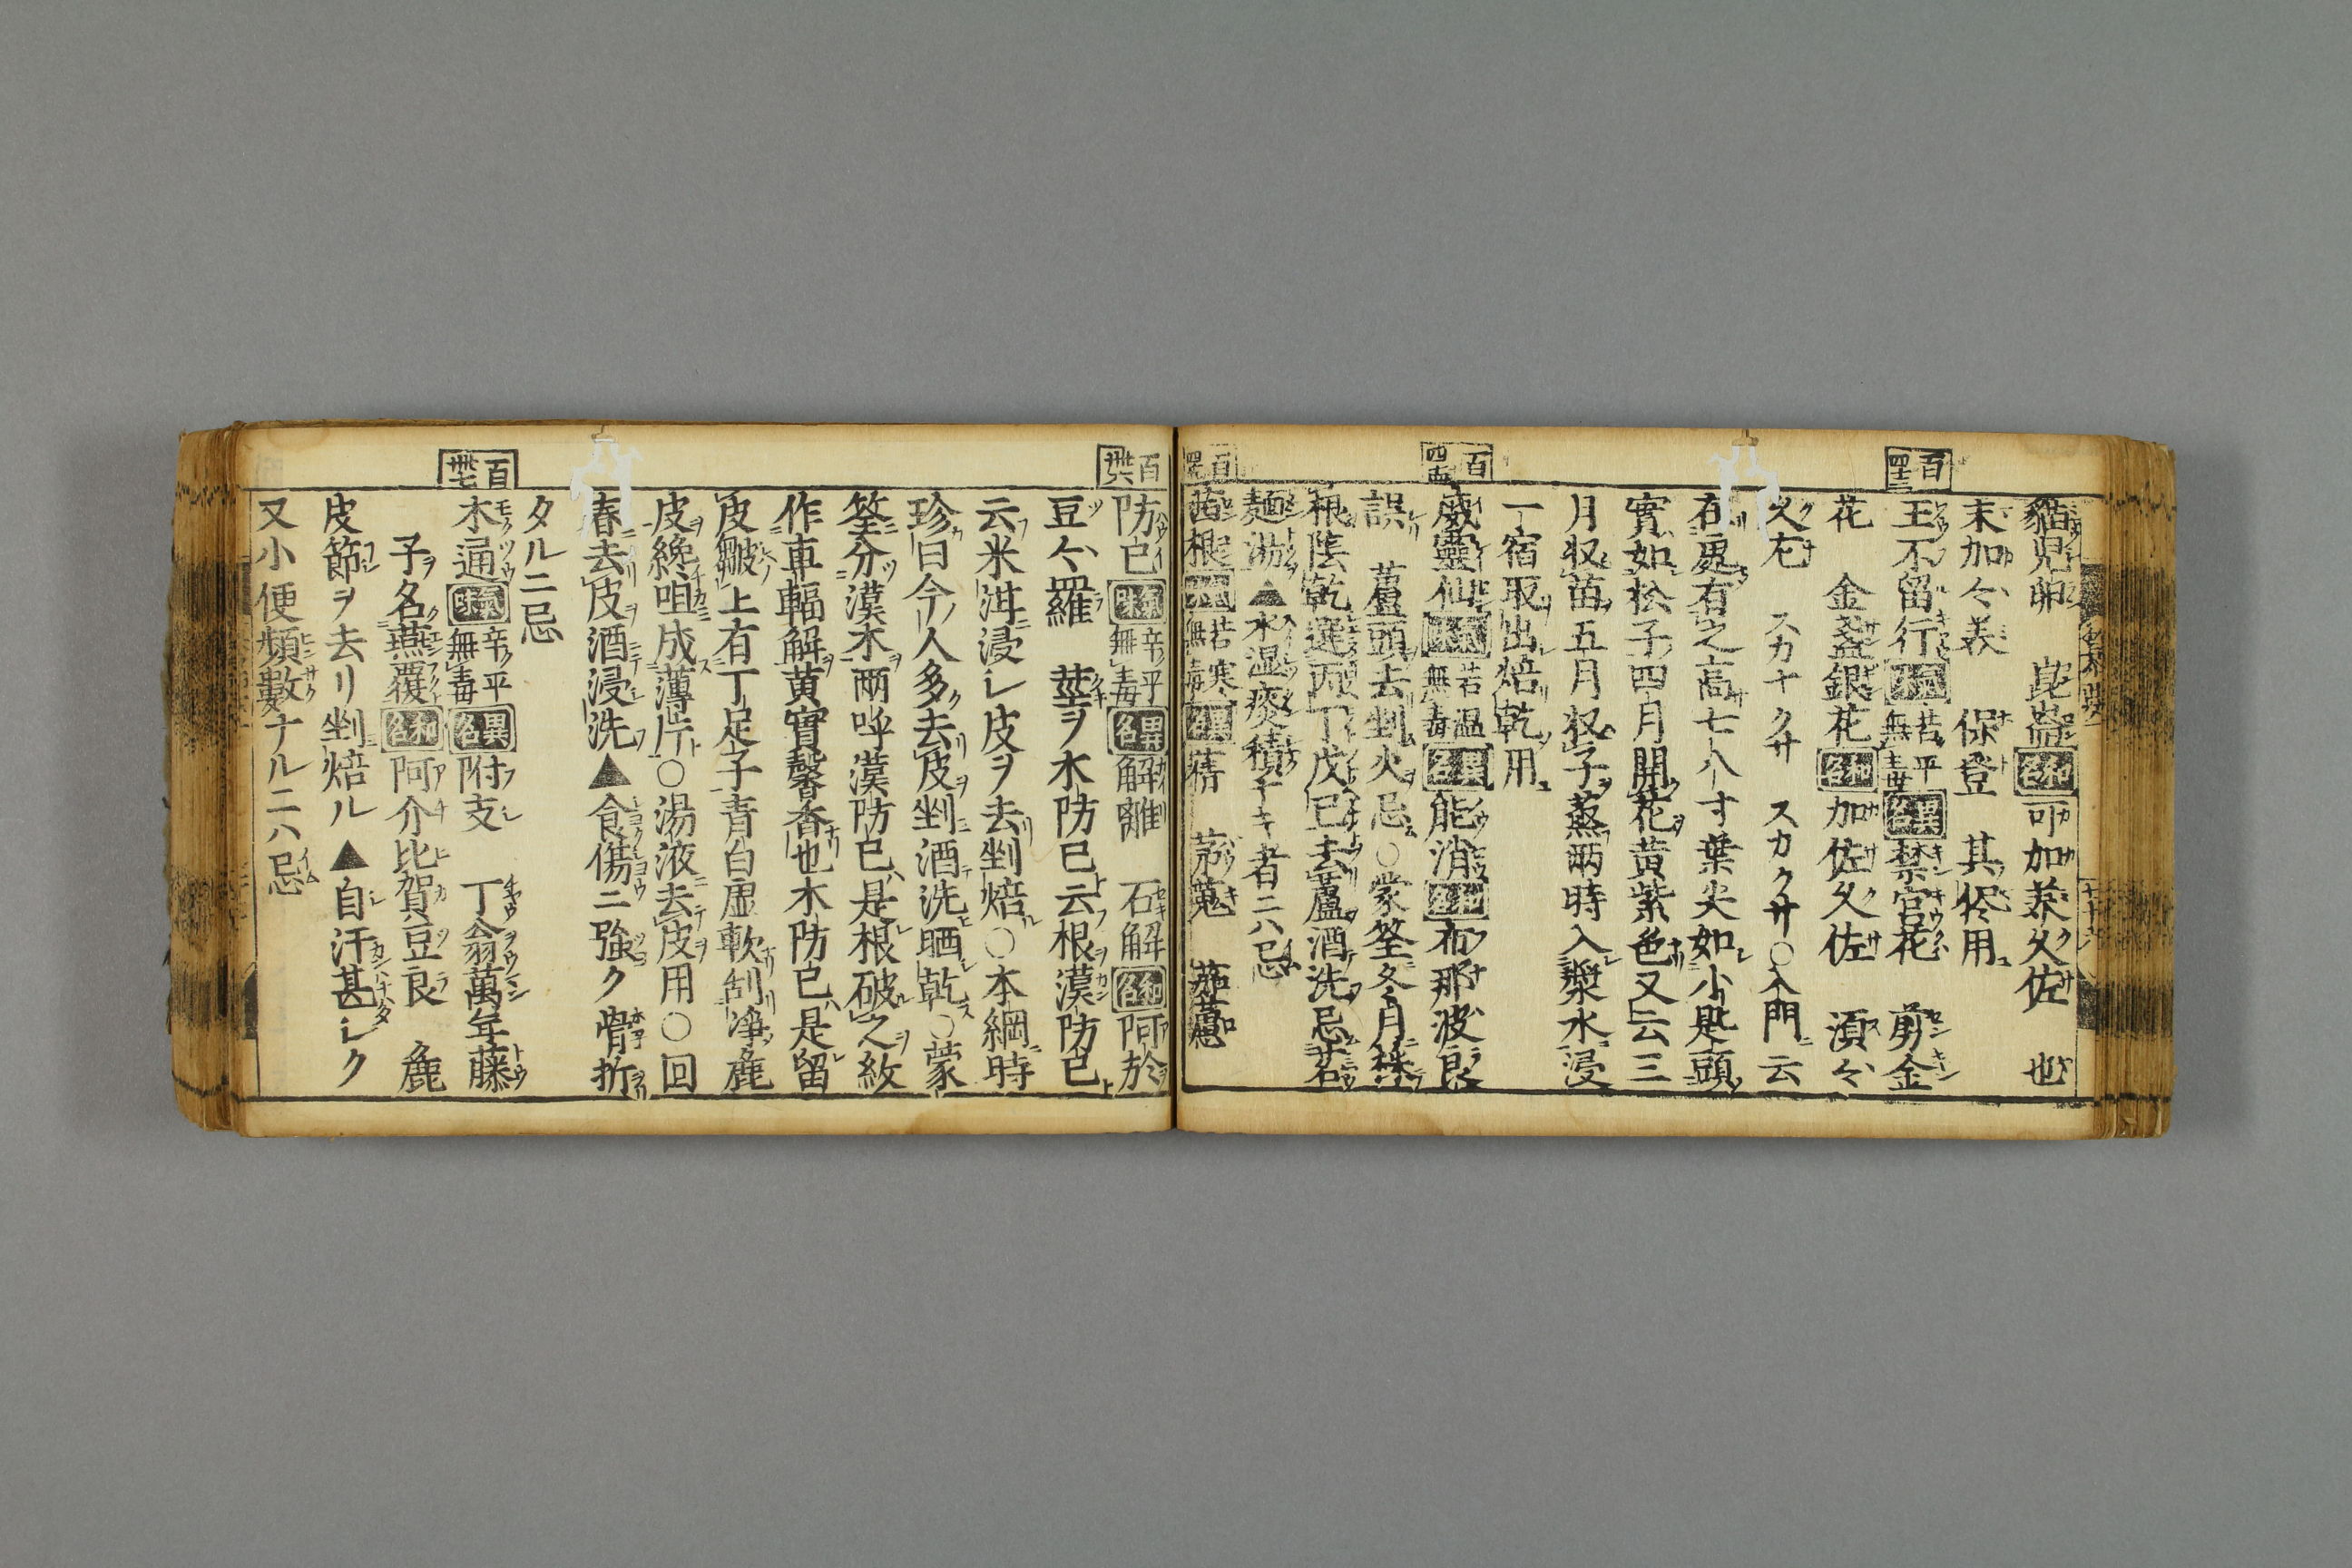 猫兒卵 崑崙 和名 可加美久佐 也
末加々美 保登 其侭用
百四十三
王不留行 氣味 苦平無毒 異名 禁宮花 剪金
花 金盞銀花 和名 加佐久佐 須々
久左 スカナクサ スカクサ○入門云
在處有之高七八寸葉尖如小匙頭
實如松子四月開花黄紫色又云三
月収苗五月収子蒸兩時入漿水浸
一宿取出焙乾用
百四十四
威靈仙 氣味 苦温無毒 異名 能消 和名 布那波良
誤 蘆頭去剉火忌○蒙筌冬月
根陰乾選丙丁戊巳去蘆酒洗忌茗
麺湯▲水湿痰積ナキ者ニハ忌
茜根 氣味 苦寒無毒 異名 蒨 茅蒐
百
防已 氣味 辛平無毒 異名 解離 石解 和名 阿於
豆々羅 莖ヲ木防巳ト云根漢防已ト
云米泔浸シ皮ヲ去剉焙○本綱時
珍曰今人多去皮剉酒洗晒乾○蒙
筌分漢木兩呼漢防已是根破之紋
作車輻解黄實馨香也木防已是留
皮皺上有丁足子青白虚軟刮淨麁
皮纔咀成薄片○湯液去皮用○回
春去皮酒浸洗▲食傷ニ強ク骨折
タルニ忌
百丗七
木通 氣味 辛平無毒 異名 附支 丁翁萬年藤
子名燕覆 和名 阿介比賀豆良 麁
皮節ヲ去リ剉焙ル▲自汗甚シク
又小便頻數ナルニハ忌